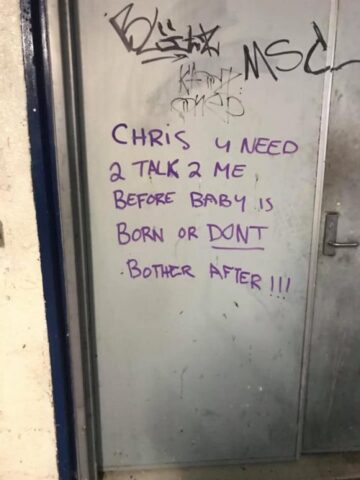 MSC
CHRIS 4 NEED
2 TALK 2 ME
BEFORE BABY IS
BORN OR DONT
BOTHER AFTER !!!